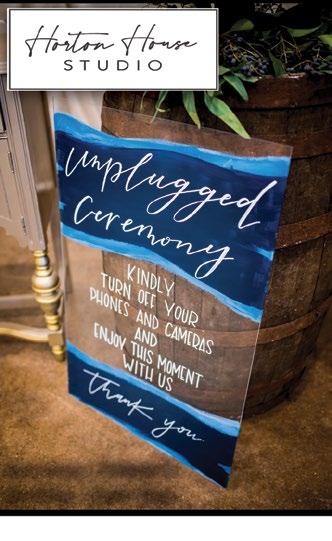 Horton House
STUDIO
unplugged
Ceremony
KINDLY
TURN OFF YOUR
PHONES AND CAMERAS
AND
ENJOY THIS MOMENT
WITH US
thank you